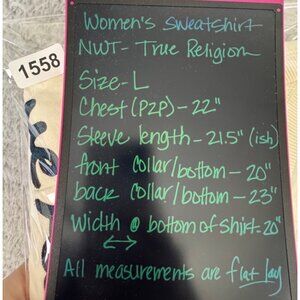 Women's sweatshirt
NWT- True Religion
1558
Size-L
Chest (P2P) - 22"
Sleeve length - 21.5" (ish)
front collar/bottom - 20"
back collar/bottom - 23"
Width @ bottom of shirt- 20"
All measurements are flat lay